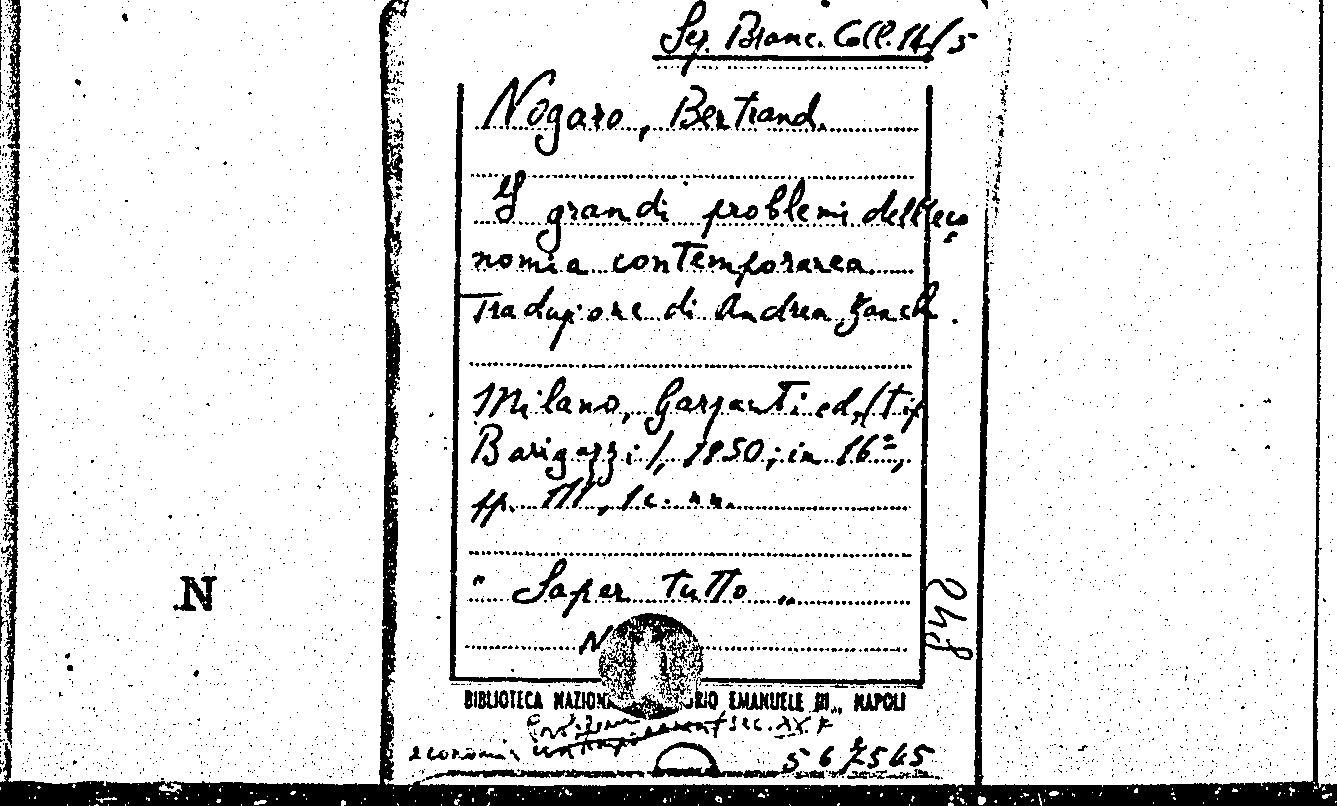 Sez. Branc. Coll. 14/5
Nogaro, Bertrand.
I grandi problemi dell'eco
nomia contemporanea.
Traduzione di Andrea Zanch.
Milano, Garzanti ed, /tip
Barigazzi/, 1950; in 16º,
pp. 111, 1 c. nn.
" Saper tutto "
N
N
BIBLIOTECA NAZION RIO EMANUELE III,, NAPOLI
sec. XX
economia
567545